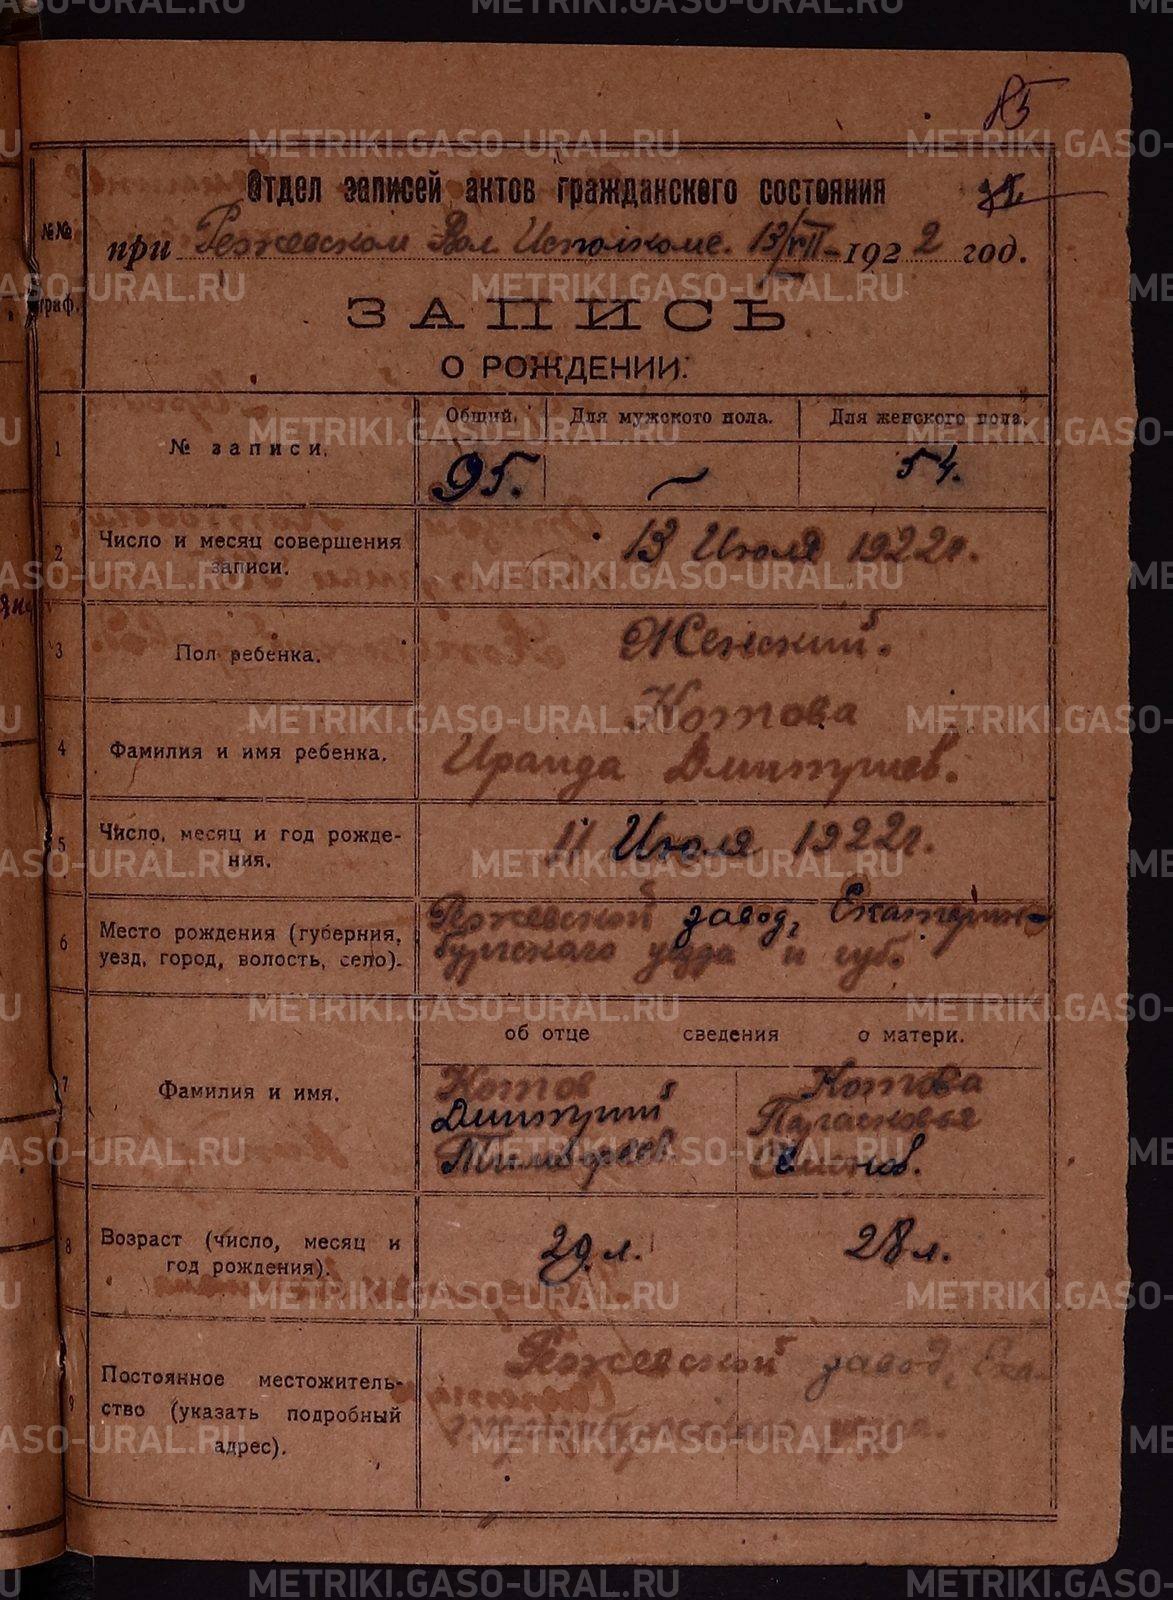 85
Отдел записей актов гражданского состояния
№№ граф.
при Режевском Вол Исполкоме. 13/VII-1922 год.
ЗАПИСЬ
О РОЖДЕНИИ.
Общий. Для мужского пола. Для женского пола.
1 № записи. 95. 54.
2 Число и месяц совершения записи. 13 Июля 1922г.
3 Пол ребенка. Женский.
Котова
4 Фамилия и имя ребенка. Ираида Дмитриев.
5 Число, месяц и год рожде-
ния. 11 Июля 1922г.
6 Место рождения (губерния, Режевской завод, Екатерин-
уезд, город, волость, село). бургского уезда и губ.
об отце сведения о матери.
7 Фамилия и имя. Котов Котова
Дмитрий Парасковья
Тимофеев Семенов.
8 Возраст (число, месяц и 29 л. 28 л.
год рождения).
9 Постоянное местожитель- Режевской завод, Ека-
ство (указать подробный теринбургского уезда.
адрес).
METRIKI.GASO-URAL.RU